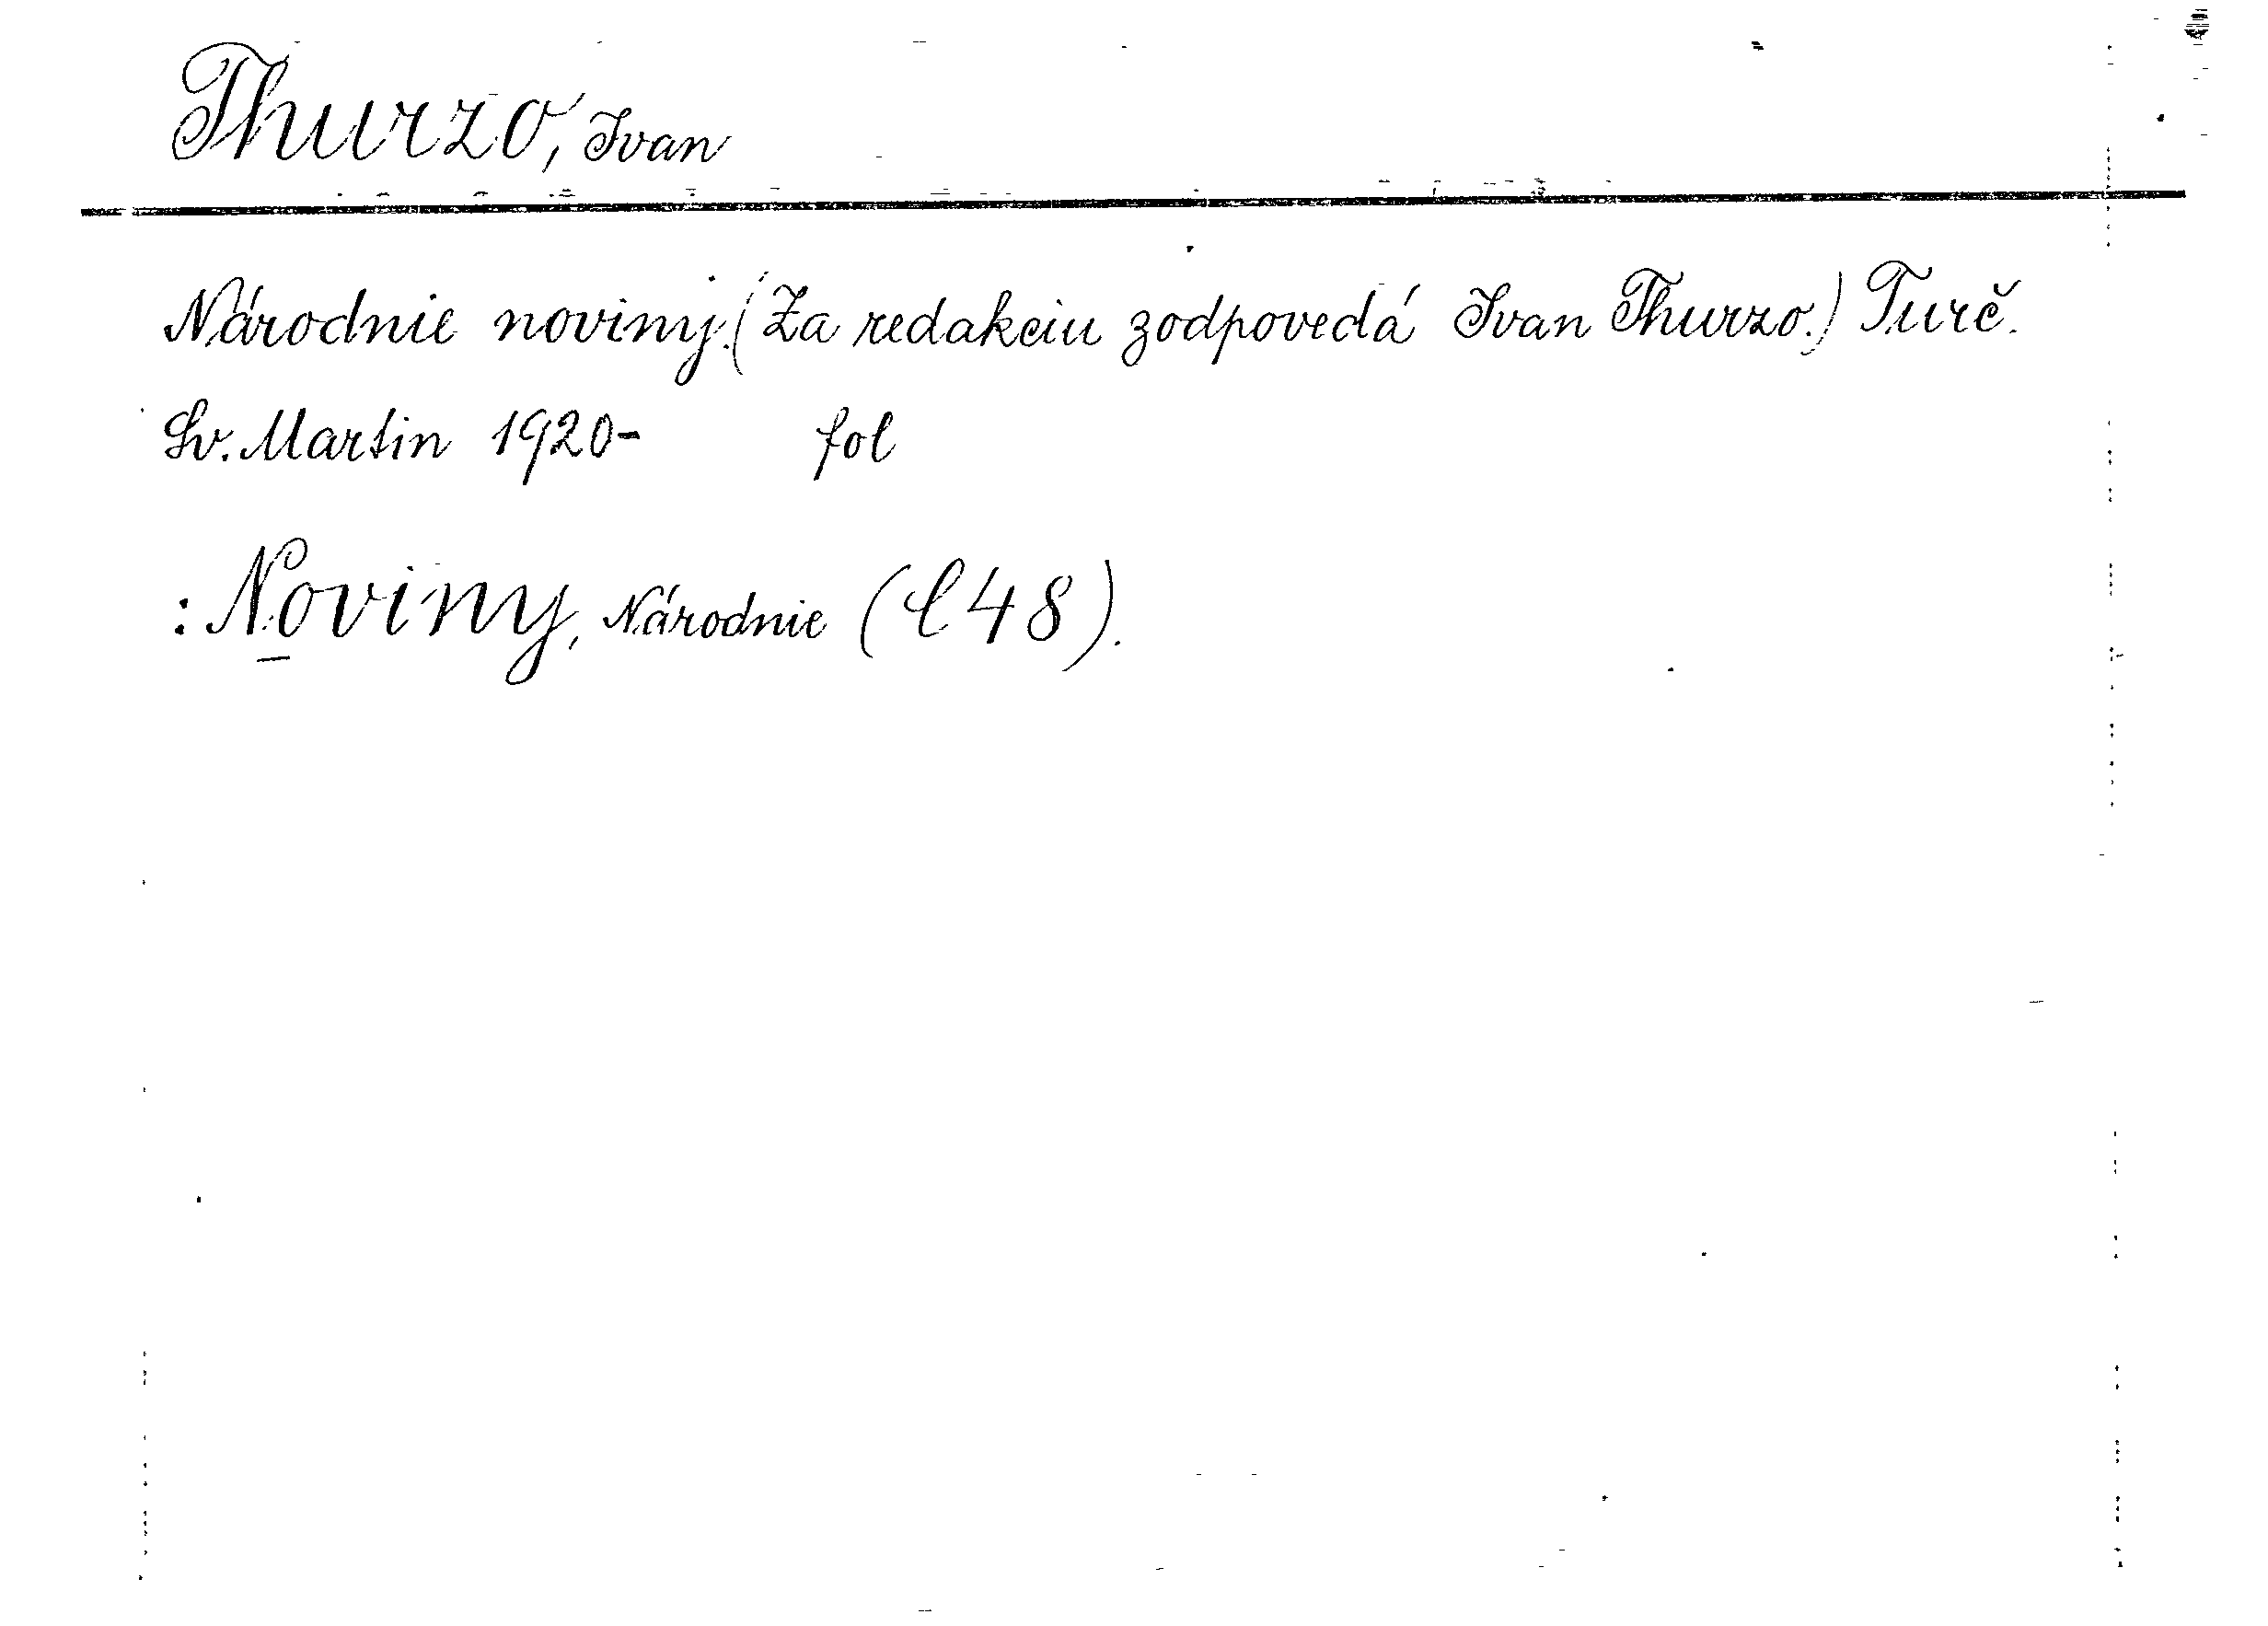 Thurzo, Ivan
Národnie noviny. (Za redakciu zodpovedá Ivan Thurzo.) Turč.
Sv. Martin 1920- fol
: Noviny, Národnie (l 48).